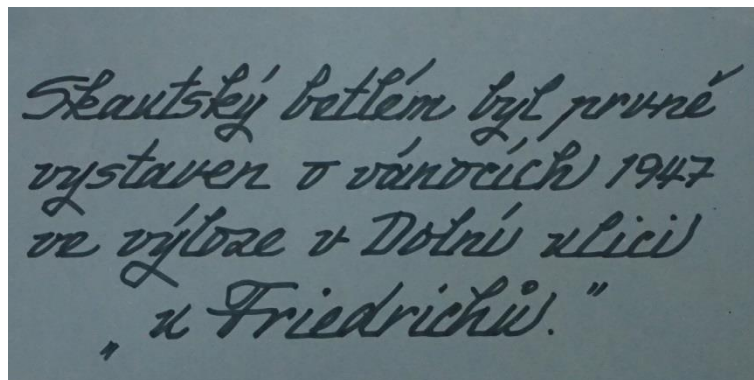 Skautský betlém byl prvně
vystaven o vánocích 1947
ve výloze v Dolní ulici
„u Friedrichů."